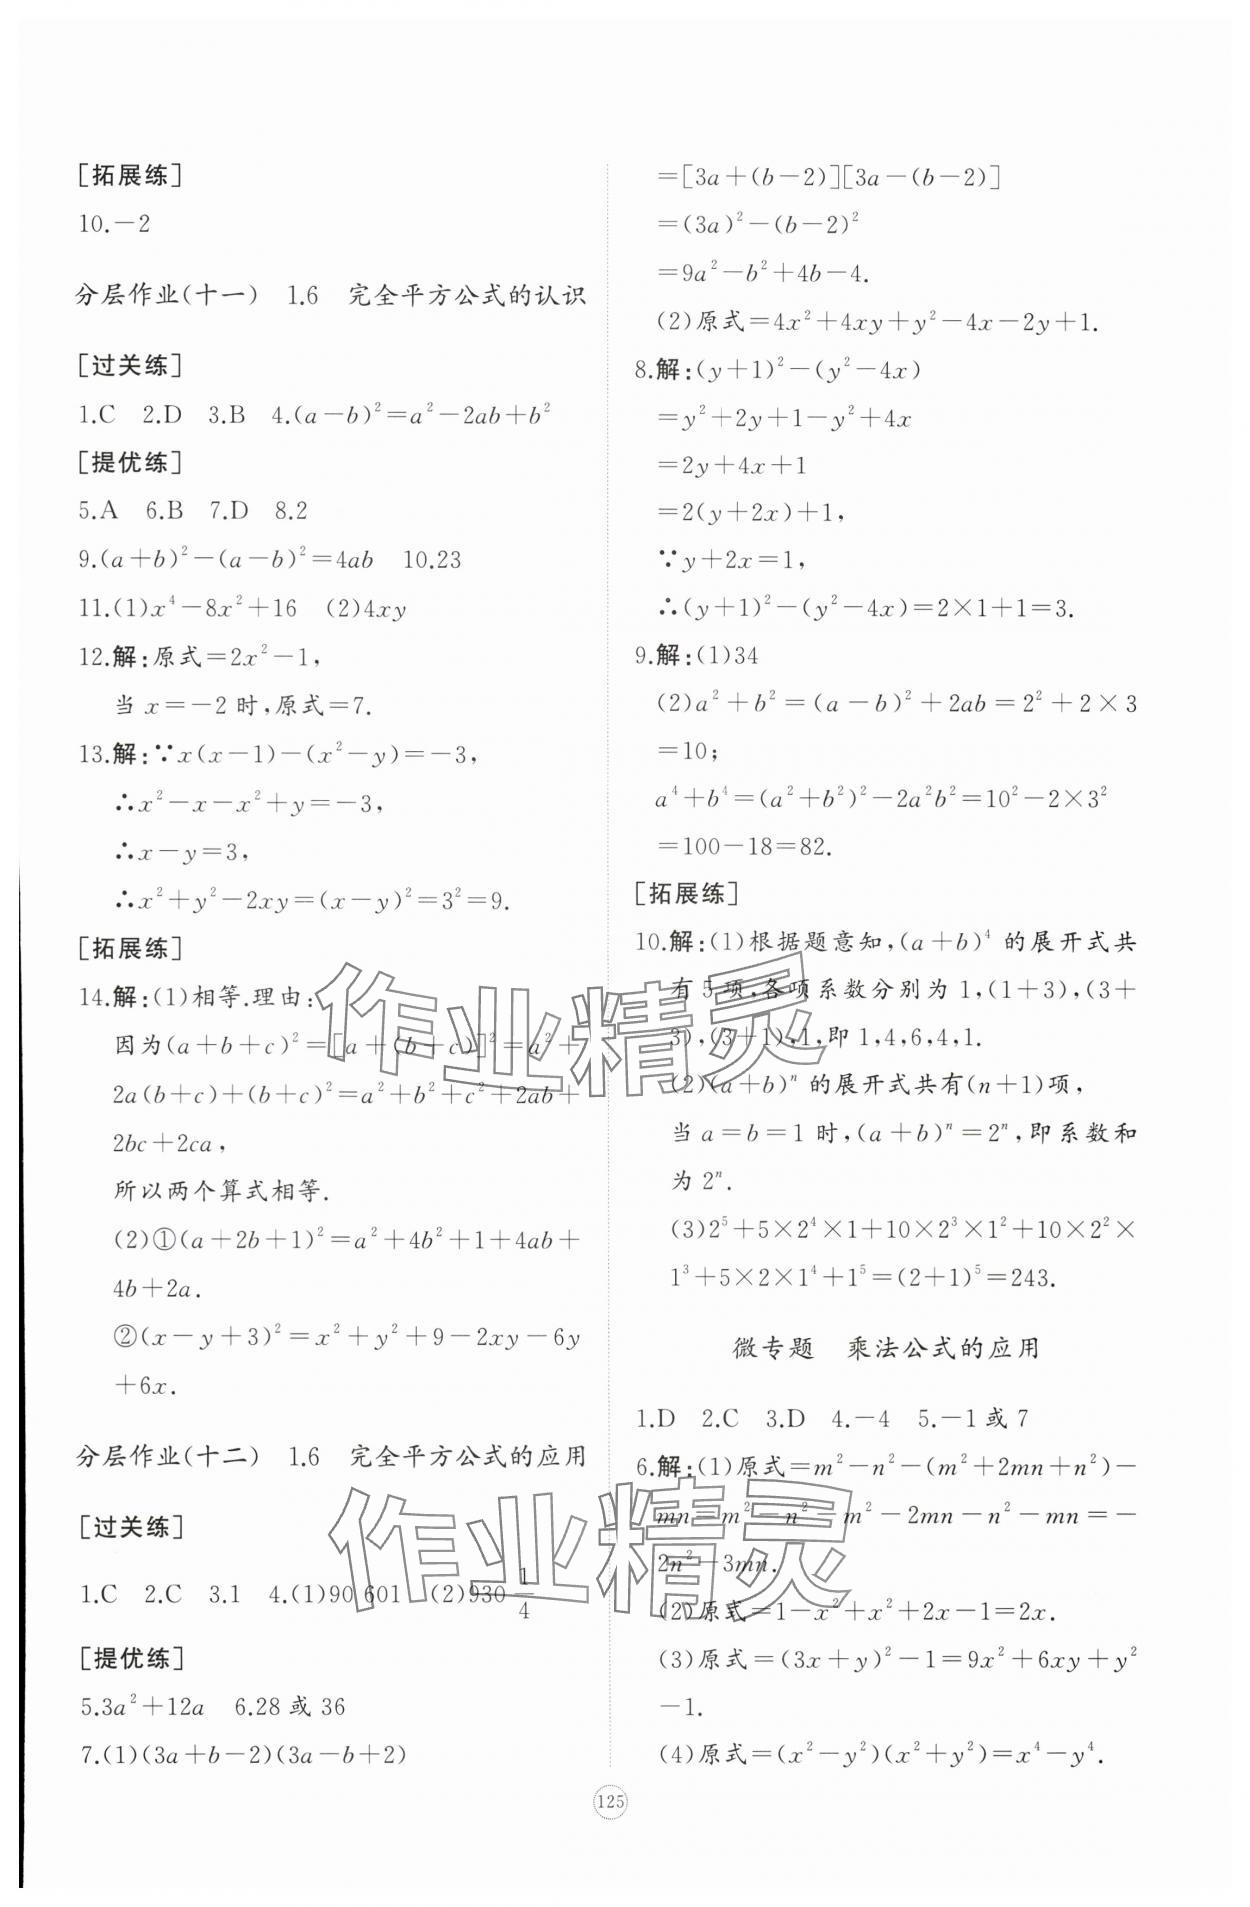 [拓展练]
10.-2
分层作业(十一) 1.6 完全平方公式的认识
[过关练]
1.C 2.D 3.B 4.(a-b)²=a²-2ab+b²
[提优练]
5.A 6.B 7.D 8.2
9.(a+b)²-(a-b)²=4ab 10.23
11.(1)x⁴-8x²+16 (2)4xy
12.解:原式=2x²-1,
当 x=-2 时,原式=7.
13.解:∵x(x-1)-(x²-y)=-3,
∴x²-x-x²+y=-3,
∴x-y=3,
∴x²+y²-2xy=(x-y)²=3²=9.
[拓展练]
14.解:(1)相等.理由:
因为(a+b+c)²=[a+(b+c)]²=a²+
2a(b+c)+(b+c)²=a²+b²+c²+2ab+
2bc+2ca,
所以两个算式相等.
(2)①(a+2b+1)²=a²+4b²+1+4ab+
4b+2a.
②(x-y+3)²=x²+y²+9-2xy-6y
+6x.
分层作业(十二) 1.6 完全平方公式的应用
[过关练]
1.C 2.C 3.1 4.(1)90 601 (2)930 1/4
[提优练]
5.3a²+12a 6.28 或 36
7.(1)(3a+b-2)(3a-b+2)
=[3a+(b-2)][3a-(b-2)]
=(3a)²-(b-2)²
=9a²-b²+4b-4.
(2)原式=4x²+4xy+y²-4x-2y+1.
8.解:(y+1)²-(y²-4x)
=y²+2y+1-y²+4x
=2y+4x+1
=2(y+2x)+1,
∵y+2x=1,
∴(y+1)²-(y²-4x)=2×1+1=3.
9.解:(1)34
(2)a²+b²=(a-b)²+2ab=2²+2×3
=10;
a⁴+b⁴=(a²+b²)²-2a²b²=10²-2×3²
=100-18=82.
[拓展练]
10.解:(1)根据题意知,(a+b)⁴ 的展开式共
有 5 项,各项系数分别为 1,(1+3),(3+
3),(3+1),1,即 1,4,6,4,1.
(2)(a+b)ⁿ 的展开式共有(n+1)项,
当 a=b=1 时,(a+b)ⁿ=2ⁿ,即系数和
为 2ⁿ.
(3)2⁵+5×2⁴×1+10×2³×1²+10×2²×
1³+5×2×1⁴+1⁵=(2+1)⁵=243.
微专题 乘法公式的应用
1.D 2.C 3.D 4.-4 5.-1 或 7
6.解:(1)原式=m²-n²-(m²+2mn+n²)-
mn=m²-n²-m²-2mn-n²-mn=-
2n²-3mn.
(2)原式=1-x²+x²+2x-1=2x.
(3)原式=(3x+y)²-1=9x²+6xy+y²
-1.
(4)原式=(x²-y²)(x²+y²)=x⁴-y⁴.
125
作业精灵
作业精灵